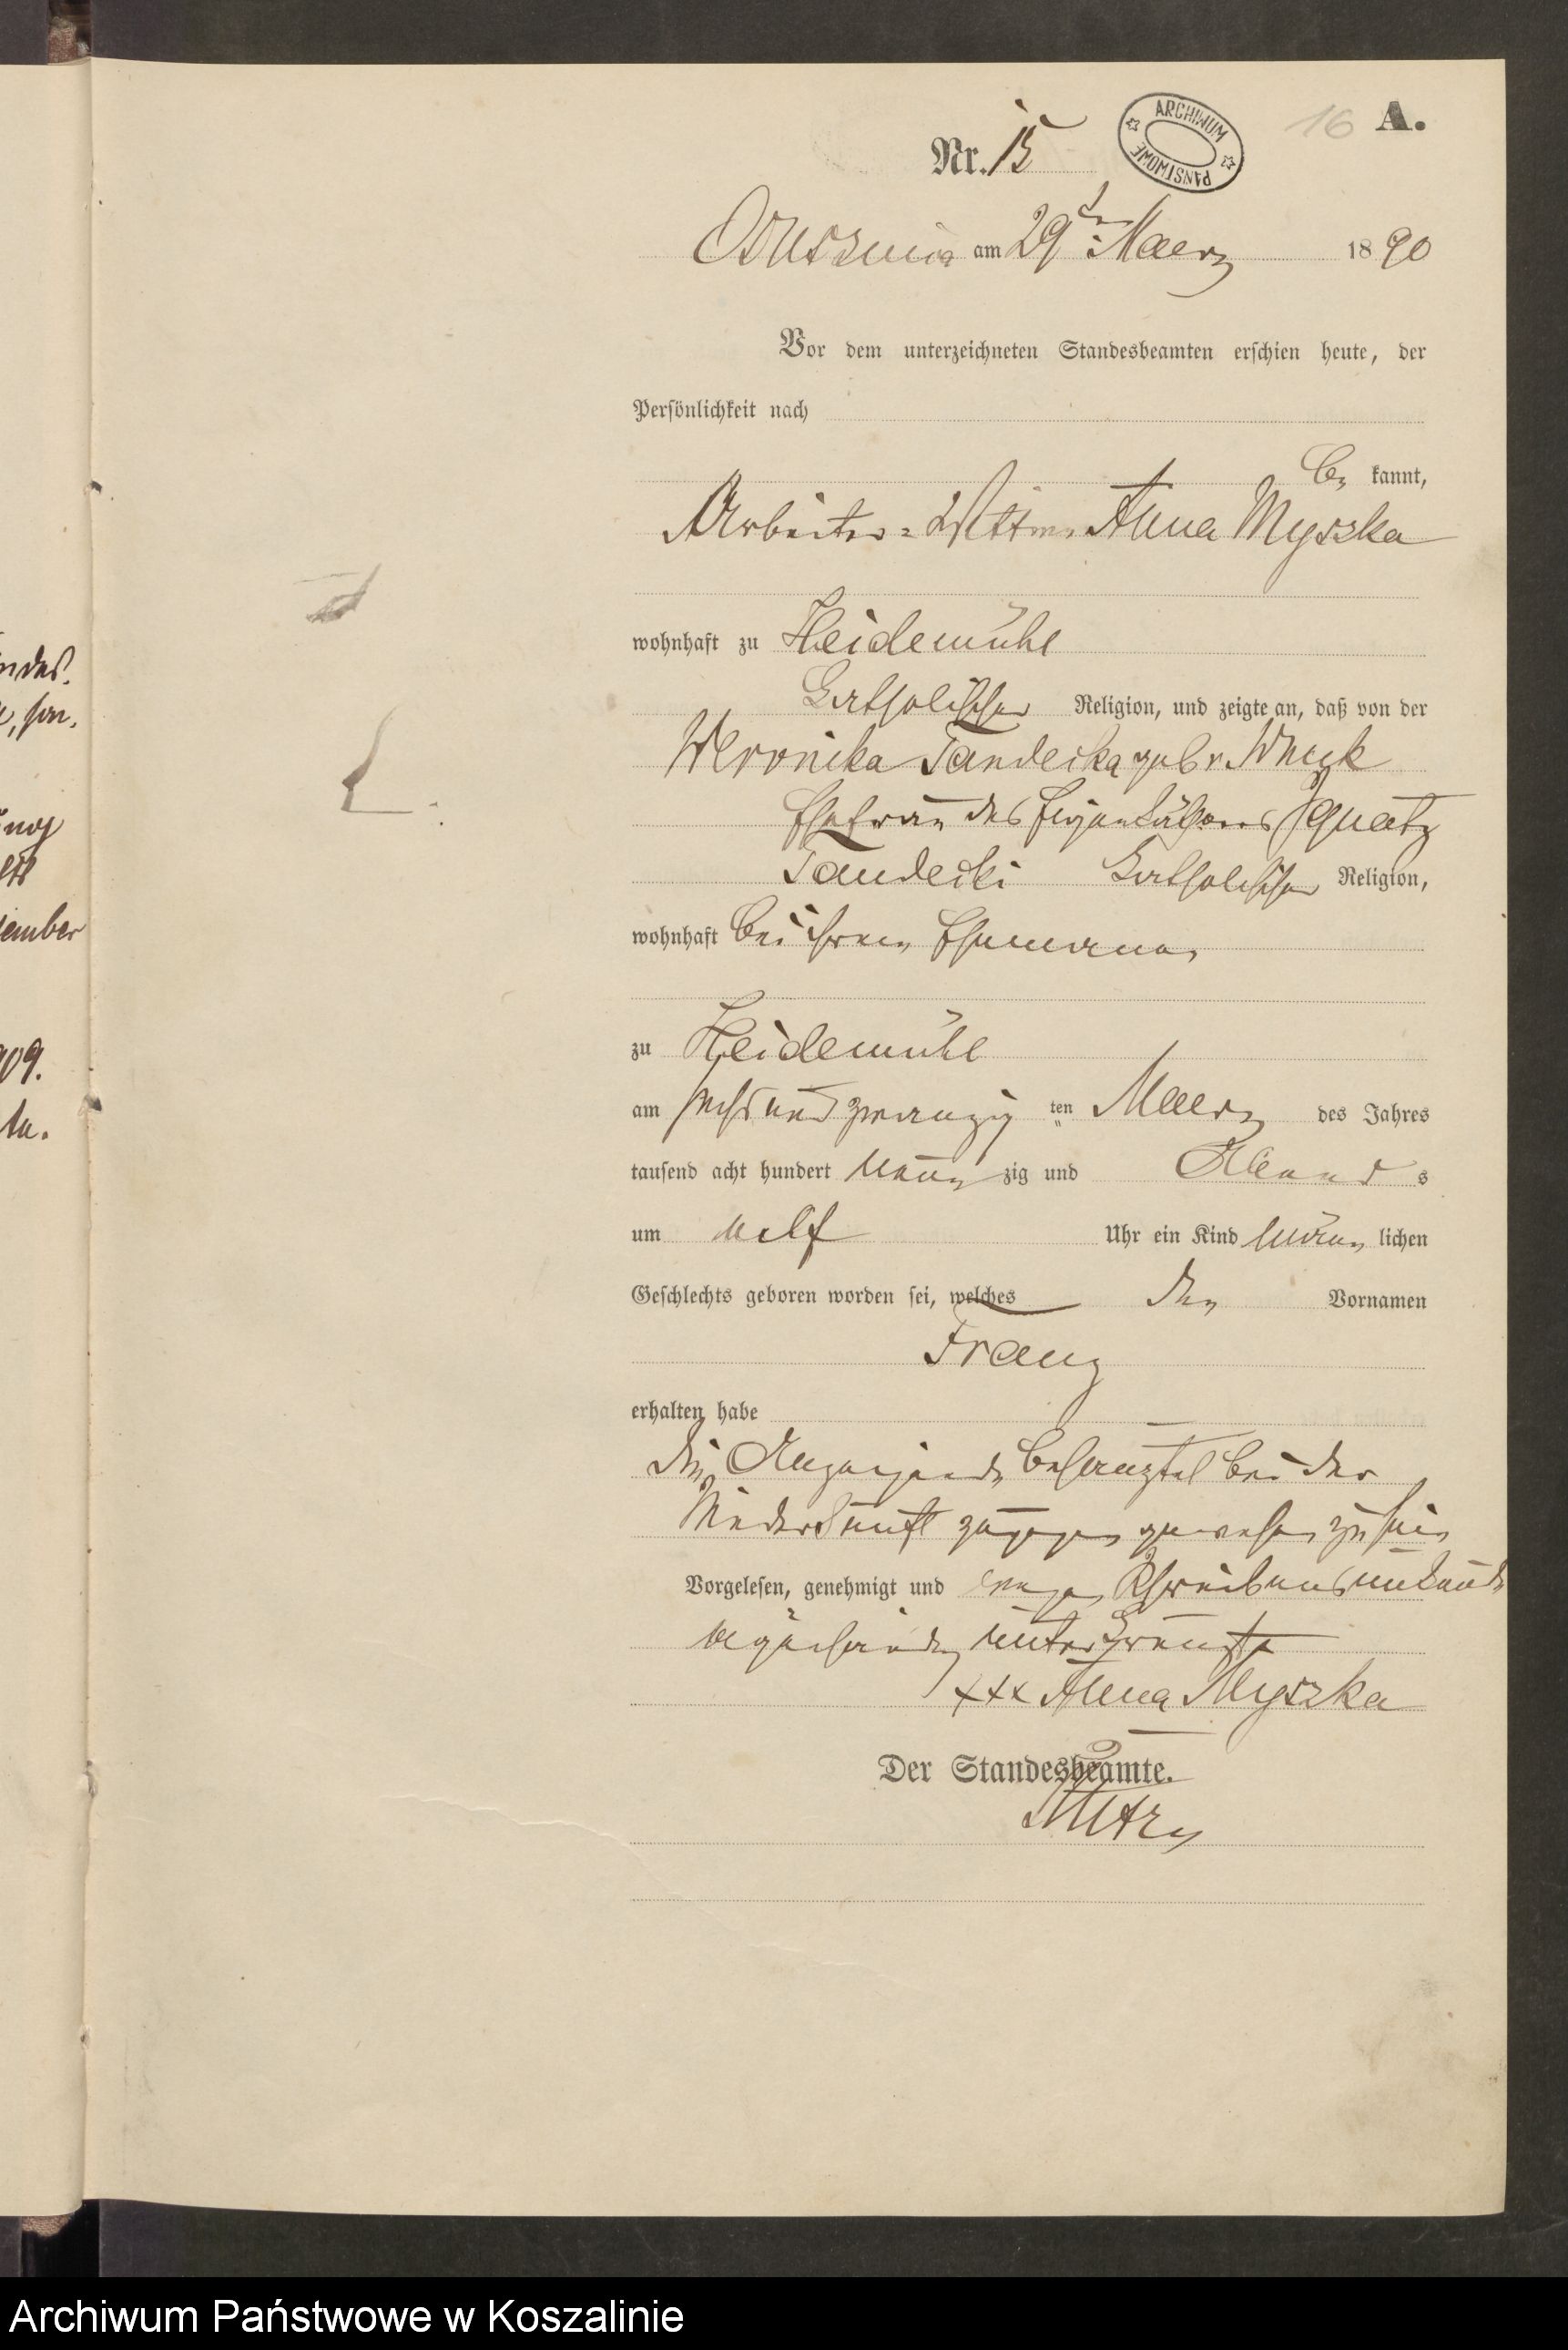 16 A.
ARCHIWUM PAŃSTWOWE
Nr. 15
am 29ten Maerz 1890
Vor dem unterzeichneten Standesbeamten erschien heute, der
Persönlichkeit nach
be kannt,
Arbeiter-Wittwe Anna Myszka
wohnhaft zu Heidemühl
katholischer Religion, und zeigte an, daß von der
Weronika Tandecka gebr.
Ehefrau des Eigenkäthners Ignatz
Tandecki katholischer Religion,
wohnhaft bei ihrem Ehemanne
zu Heidemühl
am sechsundzwanzig ten Maerz des Jahres
tausend acht hundert neun zig und Abend s
um elf Uhr ein Kind männ lichen
Geschlechts geboren worden sei, welches den Vornamen
Franz
erhalten habe
Die Anzeigende behauptet bei der
Niederkunft zugegen gewesen zu sein
Vorgelesen, genehmigt und wegen Schreibensunkunde
unterkreuzt
+++ Anna Myszka
Der Standesbeamte.
ndes.
, son.
ung
ember
909.
Archiwum Państwowe w Koszalinie